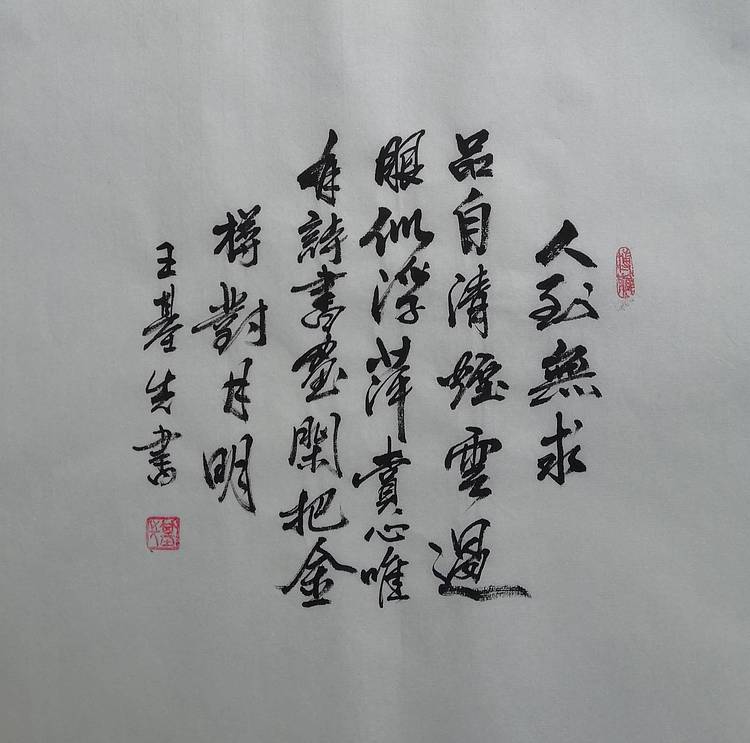 人到無求
品自清煙雲過
眼似浮萍賞心唯
有詩書畫閑把金
樽對月明
王基先書